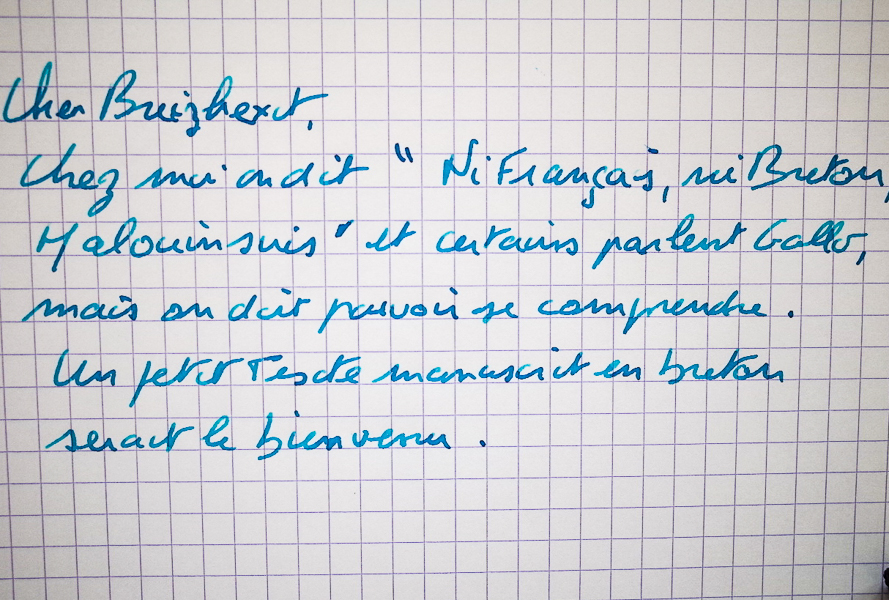 Cher Breizhexit,
Chez moi on dit " Ni Français, ni Breton,
Malouin suis " et certains parlent Gallo,
mais on doit pouvoir se comprendre.
Un petit Texte manuscrit en breton
serait le bienvenu.